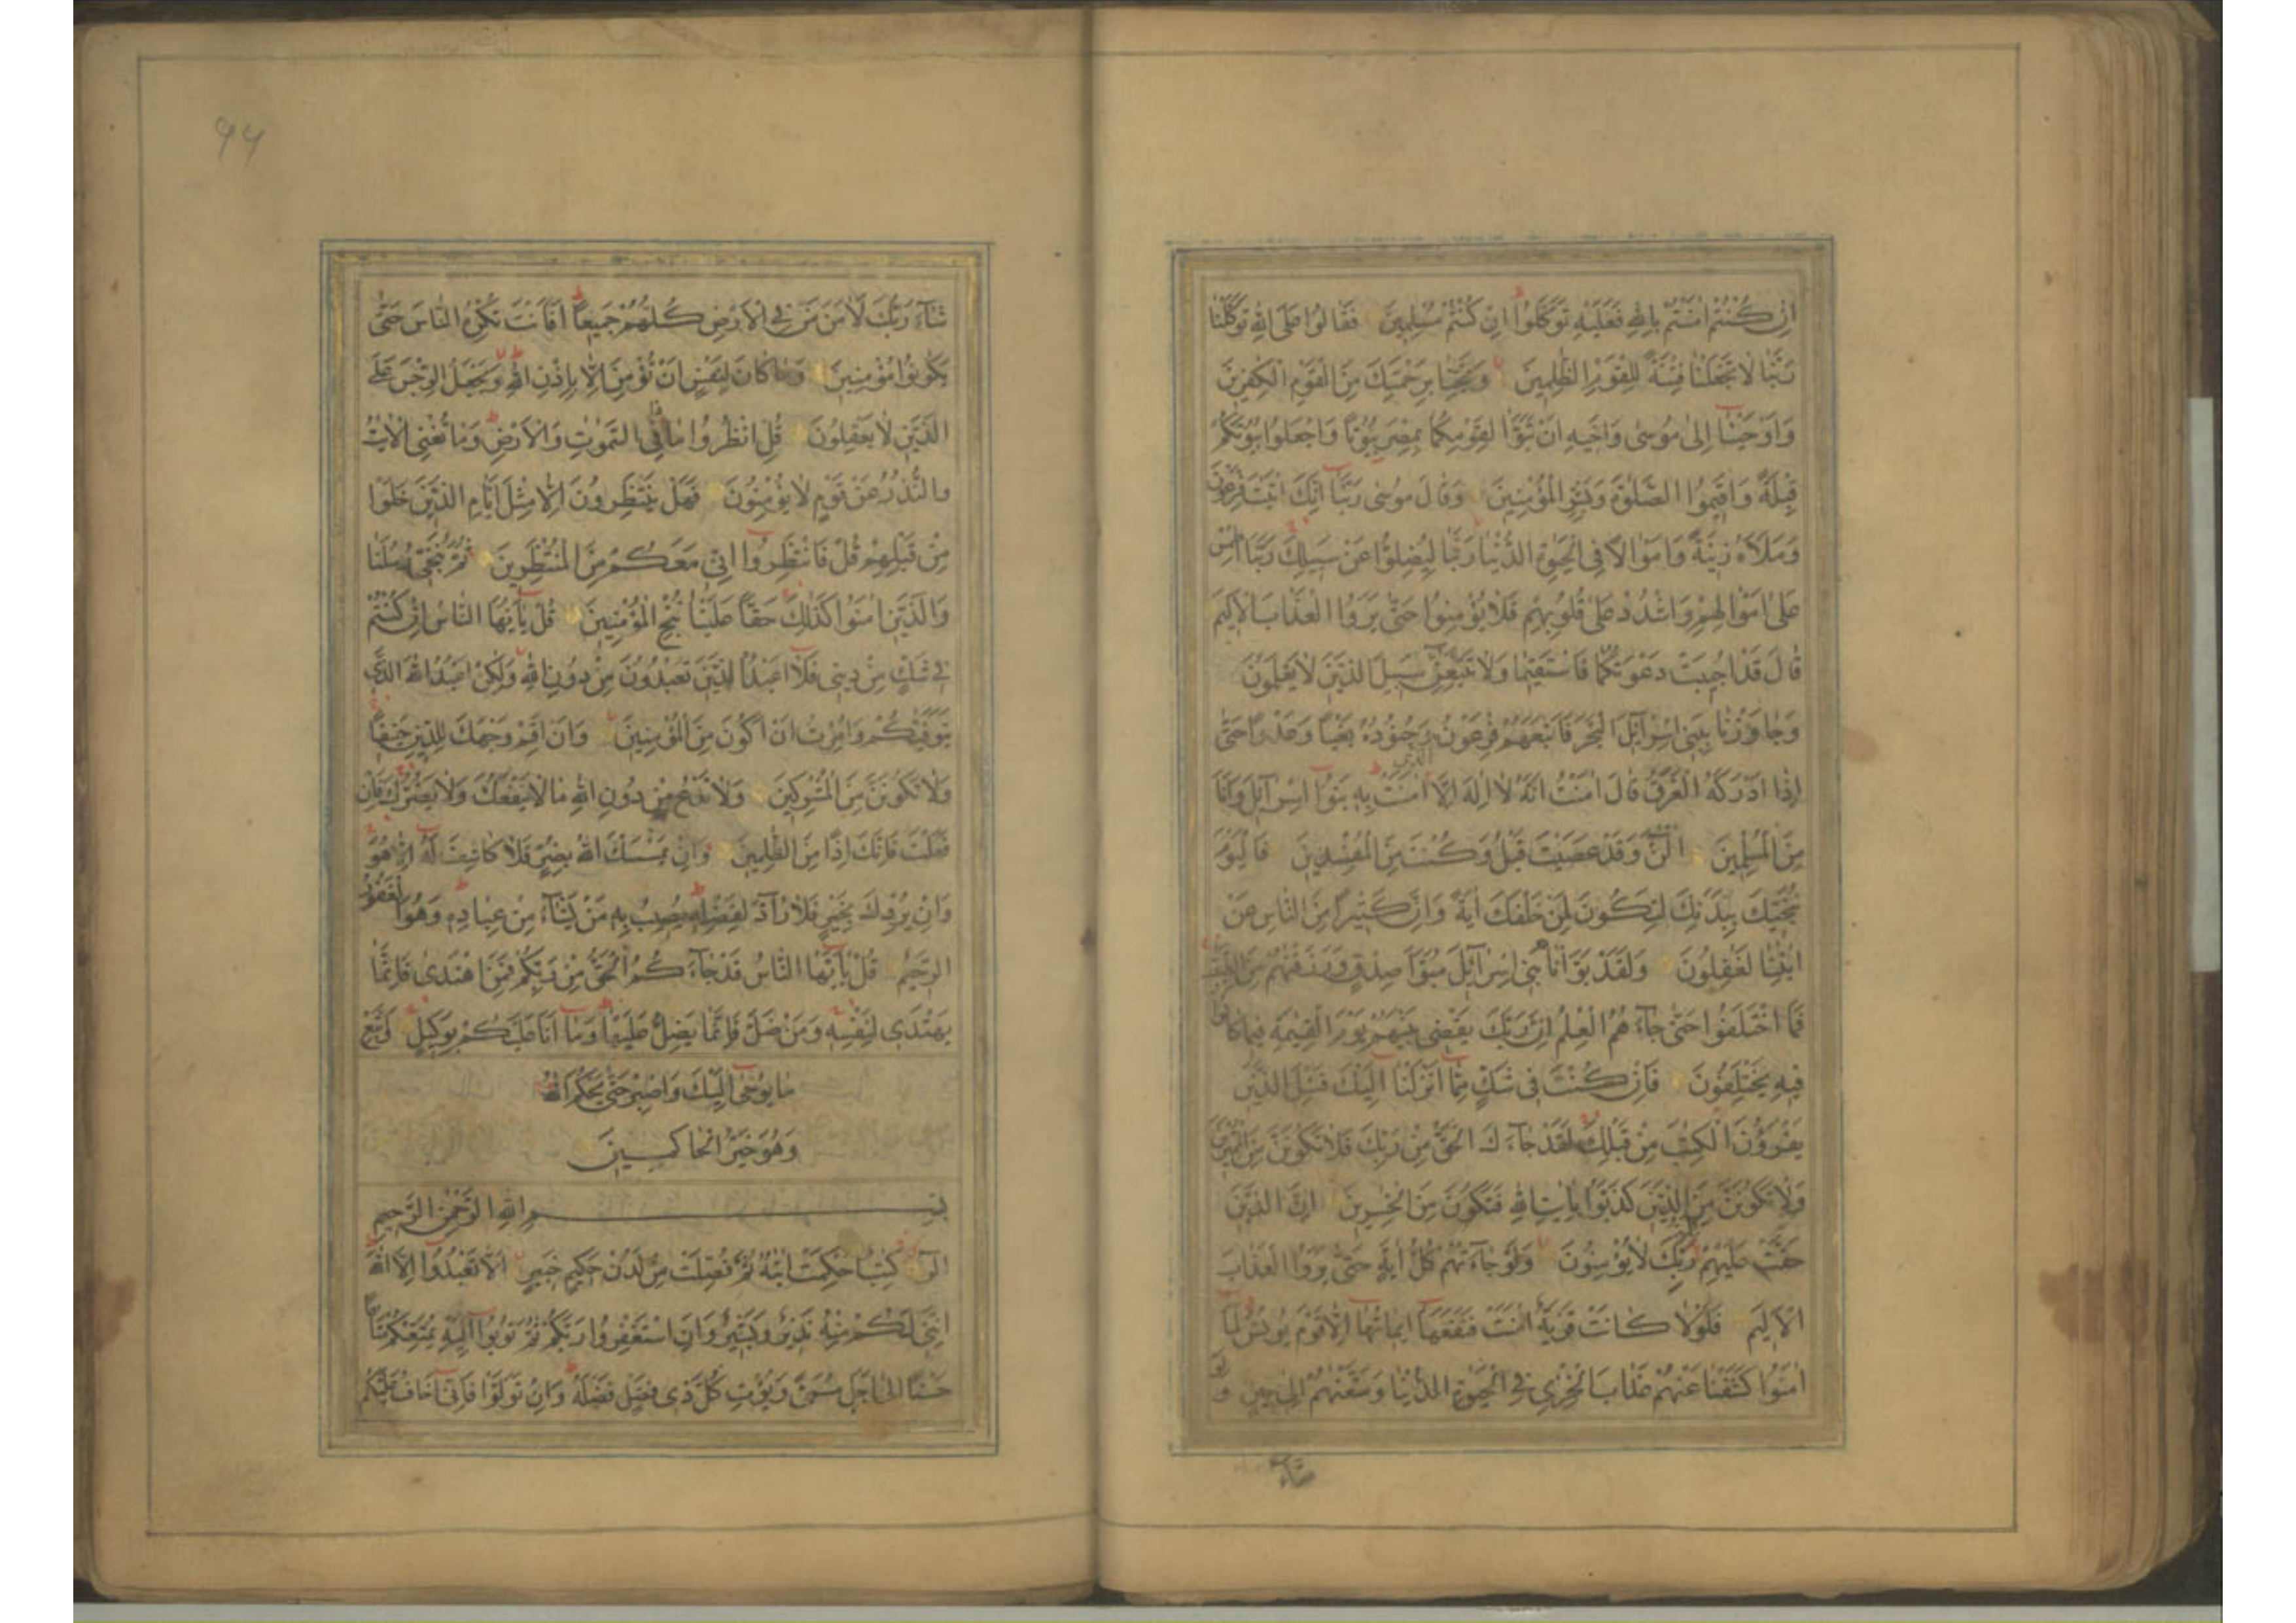 اِنْ كُنْتُمْ اٰمَنْتُمْ بِاللّٰهِ فَعَلَيْهِ تَوَكَّلُوْا اِنْ كُنْتُمْ مُسْلِمِيْنَ فَقَالُوْا عَلَى اللّٰهِ تَوَكَّلْنَا
رَبَّنَا لَا تَجْعَلْنَا فِتْنَةً لِلْقَوْمِ الظّٰلِمِيْنَ وَنَجِّنَا بِرَحْمَتِكَ مِنَ الْقَوْمِ الْكٰفِرِيْنَ
وَاَوْحَيْنَا اِلٰى مُوْسٰى وَاَخِيْهِ اَنْ تَبَوَّاٰ لِقَوْمِكُمَا بِمِصْرَ بُيُوْتًا وَاجْعَلُوْا بُيُوْتَكُمْ
قِبْلَةً وَاَقِيْمُوا الصَّلٰوةَ وَبَشِّرِ الْمُؤْمِنِيْنَ وَقَالَ مُوْسٰى رَبَّنَا اِنَّكَ اٰتَيْتَ فِرْعَوْنَ
وَمَلَاَهُ زِيْنَةً وَاَمْوَالًا فِى الْحَيٰوةِ الدُّنْيَا رَبَّنَا لِيُضِلُّوْا عَنْ سَبِيْلِكَ رَبَّنَا اطْمِسْ
عَلٰى اَمْوَالِهِمْ وَاشْدُدْ عَلٰى قُلُوْبِهِمْ فَلَا يُؤْمِنُوْا حَتّٰى يَرَوُا الْعَذَابَ الْاَلِيْمَ
قَالَ قَدْ اُجِيْبَتْ دَعْوَتُكُمَا فَاسْتَقِيْمَا وَلَا تَتَّبِعٰنِّ سَبِيْلَ الَّذِيْنَ لَا يَعْلَمُوْنَ
وَجَاوَزْنَا بِبَنِىْ اِسْرَآئِلَ الْبَحْرَ فَاَتْبَعَهُمْ فِرْعَوْنُ وَجُنُوْدُهُ بَغْيًا وَعَدْوًا حَتّٰى
اِذَا اَدْرَكَهُ الْغَرَقُ قَالَ اٰمَنْتُ اَنَّهُ لَا اِلٰهَ اِلَّا الَّذِى اٰمَنَتْ بِهِ بَنُوْا اِسْرَآئِلَ وَاَنَا
مِنَ الْمُسْلِمِيْنَ اٰلْـٰٔنَ وَقَدْ عَصَيْتَ قَبْلُ وَكُنْتَ مِنَ الْمُفْسِدِيْنَ فَالْيَوْمَ
نُنَجِّيْكَ بِبَدَنِكَ لِتَكُوْنَ لِمَنْ خَلْفَكَ اٰيَةً وَاِنَّ كَثِيْرًا مِنَ النَّاسِ عَنْ
اٰيٰتِنَا لَغٰفِلُوْنَ وَلَقَدْ بَوَّاْنَا بَنِىْ اِسْرَآئِلَ مُبَوَّاَ صِدْقٍ وَرَزَقْنٰهُمْ مِنَ الطَّيِّبٰتِ
فَمَا اخْتَلَفُوْا حَتّٰى جَآءَهُمُ الْعِلْمُ اِنَّ رَبَّكَ يَقْضِىْ بَيْنَهُمْ يَوْمَ الْقِيٰمَةِ فِيْمَا كَانُوْا
فِيْهِ يَخْتَلِفُوْنَ فَاِنْ كُنْتَ فِىْ شَكٍّ مِمَّا اَنْزَلْنَا اِلَيْكَ فَسْئَلِ الَّذِيْنَ
يَقْرَؤُنَ الْكِتٰبَ مِنْ قَبْلِكَ لَقَدْ جَآءَكَ الْحَقُّ مِنْ رَبِّكَ فَلَا تَكُوْنَنَّ مِنَ الْمُمْتَرِيْنَ
وَلَا تَكُوْنَنَّ مِنَ الَّذِيْنَ كَذَّبُوْا بِاٰيٰتِ اللّٰهِ فَتَكُوْنَ مِنَ الْخٰسِرِيْنَ اِنَّ الَّذِيْنَ
حَقَّتْ عَلَيْهِمْ رَبِّكَ لَا يُؤْمِنُوْنَ وَلَوْ جَآءَتْهُمْ كُلُّ اٰيَةٍ حَتّٰى يَرَوُا الْعَذَابَ
الْاَلِيْمَ فَلَوْلَا كَانَتْ قَرْيَةٌ اٰمَنَتْ فَنَفَعَهَا اِيْمَانُهَا اِلَّا قَوْمَ يُوْنُسَ لَمَّا
اٰمَنُوْا كَشَفْنَا عَنْهُمْ عَذَابَ الْخِزْىِ فِى الْحَيٰوةِ الدُّنْيَا وَمَتَّعْنٰهُمْ اِلٰى حِيْنٍ وَلَوْ
شَآءَ
٩٤
شَآءَ رَبُّكَ لَاٰمَنَ مَنْ فِى الْاَرْضِ كُلُّهُمْ جَمِيْعًا اَفَاَنْتَ تُكْرِهُ النَّاسَ حَتّٰى
يَكُوْنُوْا مُؤْمِنِيْنَ وَمَا كَانَ لِنَفْسٍ اَنْ تُؤْمِنَ اِلَّا بِاِذْنِ اللّٰهِ وَيَجْعَلُ الرِّجْسَ عَلَى
الَّذِيْنَ لَا يَعْقِلُوْنَ قُلِ انْظُرُوْا مَا فِى السَّمٰوٰتِ وَالْاَرْضِ وَمَا تُغْنِى الْاٰيٰتُ
وَالنُّذُرُ عَنْ قَوْمٍ لَا يُؤْمِنُوْنَ فَهَلْ يَنْتَظِرُوْنَ اِلَّا مِثْلَ اَيَّامِ الَّذِيْنَ خَلَوْا
مِنْ قَبْلِهِمْ قُلْ فَانْتَظِرُوْا اِنِّىْ مَعَكُمْ مِنَ الْمُنْتَظِرِيْنَ ثُمَّ نُنَجِّىْ رُسُلَنَا
وَالَّذِيْنَ اٰمَنُوْا كَذٰلِكَ حَقًّا عَلَيْنَا نُنْجِ الْمُؤْمِنِيْنَ قُلْ يٰٓاَيُّهَا النَّاسُ اِنْ كُنْتُمْ
فِىْ شَكٍّ مِنْ دِيْنِىْ فَلَا اَعْبُدُ الَّذِيْنَ تَعْبُدُوْنَ مِنْ دُوْنِ اللّٰهِ وَلٰكِنْ اَعْبُدُ اللّٰهَ الَّذِىْ
يَتَوَفّٰيكُمْ وَاُمِرْتُ اَنْ اَكُوْنَ مِنَ الْمُؤْمِنِيْنَ وَاَنْ اَقِمْ وَجْهَكَ لِلدِّيْنِ حَنِيْفًا
وَلَا تَكُوْنَنَّ مِنَ الْمُشْرِكِيْنَ وَلَا تَدْعُ مِنْ دُوْنِ اللّٰهِ مَا لَا يَنْفَعُكَ وَلَا يَضُرُّكَ فَاِنْ
فَعَلْتَ فَاِنَّكَ اِذًا مِنَ الظّٰلِمِيْنَ وَاِنْ يَمْسَسْكَ اللّٰهُ بِضُرٍّ فَلَا كَاشِفَ لَهُ اِلَّا هُوَ
وَاِنْ يُرِدْكَ بِخَيْرٍ فَلَا رَآدَّ لِفَضْلِهِ يُصِيْبُ بِهِ مَنْ يَشَآءُ مِنْ عِبَادِهِ وَهُوَ الْغَفُوْرُ
الرَّحِيْمُ قُلْ يٰٓاَيُّهَا النَّاسُ قَدْ جَآءَكُمُ الْحَقُّ مِنْ رَبِّكُمْ فَمَنِ اهْتَدٰى فَاِنَّمَا
يَهْتَدِىْ لِنَفْسِهِ وَمَنْ ضَلَّ فَاِنَّمَا يَضِلُّ عَلَيْهَا وَمَا اَنَا عَلَيْكُمْ بِوَكِيْلٍ وَاتَّبِعْ
مَا يُوْحٰى اِلَيْكَ وَاصْبِرْ حَتّٰى يَحْكُمَ اللّٰهُ
وَهُوَ خَيْرُ الْحَاكِمِيْنَ
بِسْمِ اللّٰهِ الرَّحْمٰنِ الرَّحِيْمِ
الٓرٰ كِتٰبٌ اُحْكِمَتْ اٰيٰتُهُ ثُمَّ فُصِّلَتْ مِنْ لَدُنْ حَكِيْمٍ خَبِيْرٍ اَلَّا تَعْبُدُوْا اِلَّا اللّٰهَ
اِنَّنِىْ لَكُمْ مِنْهُ نَذِيْرٌ وَبَشِيْرٌ وَاَنِ اسْتَغْفِرُوْا رَبَّكُمْ ثُمَّ تُوْبُوْا اِلَيْهِ يُمَتِّعْكُمْ مَتَاعًا
حَسَنًا اِلٰى اَجَلٍ مُسَمًّى وَيُؤْتِ كُلَّ ذِىْ فَضْلٍ فَضْلَهُ وَاِنْ تَوَلَّوْا فَاِنِّىْ اَخَافُ عَلَيْكُمْ